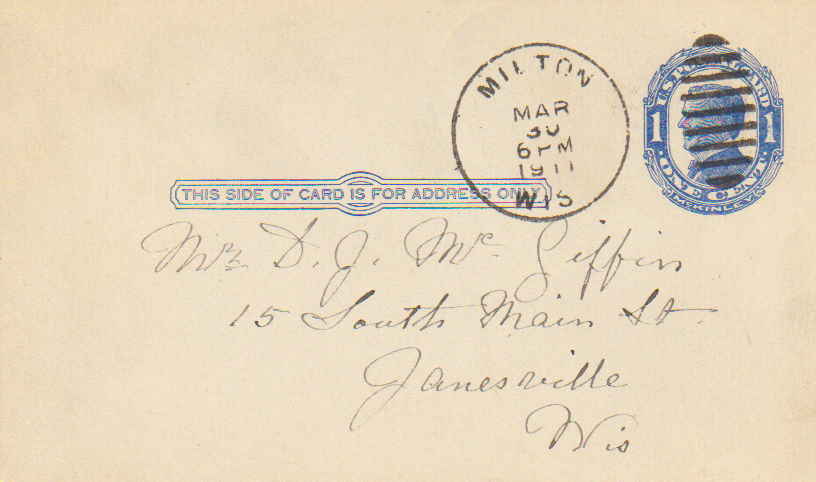 MILTON
MAR
30
6PM
1911
WIS
U.S. POSTAL CARD
1 1
ONE CENT
McKINLEY
THIS SIDE OF CARD IS FOR ADDRESS ONLY
Mr. D. J. Mc Giffin
15 South Main St.
Janesville
Wis